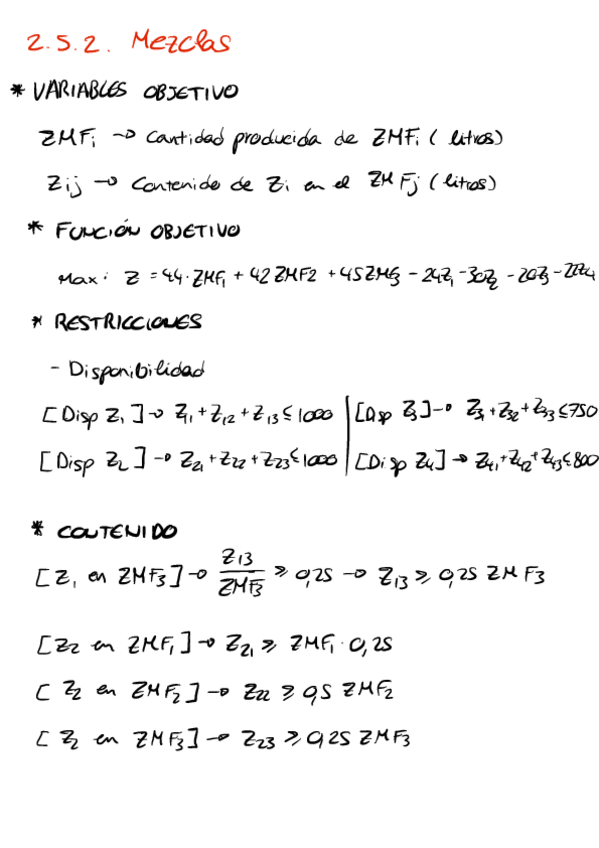 2.5.2. Mezclas
* VARIABLES OBJETIVO
ZMFi → Cantidad producida de ZMFi (litros)
Zij → Contenido de Zi en el ZMFj (litros)
* FUNCIÓN OBJETIVO
Max: Z = 44·ZMF1 + 42ZMF2 + 45ZMF3 - 24Z1 - 30Z2 - 20Z3 - 22Z4
* RESTRICCIONES
- Disponibilidad
[Disp Z1] → Z11 + Z12 + Z13 ≤ 1000 | [Disp Z3] → Z31 + Z32 + Z33 ≤ 750
[Disp Z2] → Z21 + Z22 + Z23 ≤ 1000 | [Disp Z4] → Z41 + Z42 + Z43 ≤ 800
* CONTENIDO
[Z1 en ZMF3] → Z13/ZMF3 ≥ 0,25 → Z13 ≥ 0,25 ZMF3
[Z2 en ZMF1] → Z21 ≥ ZMF1 · 0,25
[Z2 en ZMF2] → Z22 ≥ 0,5 ZMF2
[Z2 en ZMF3] → Z23 ≥ 0,25 ZMF3